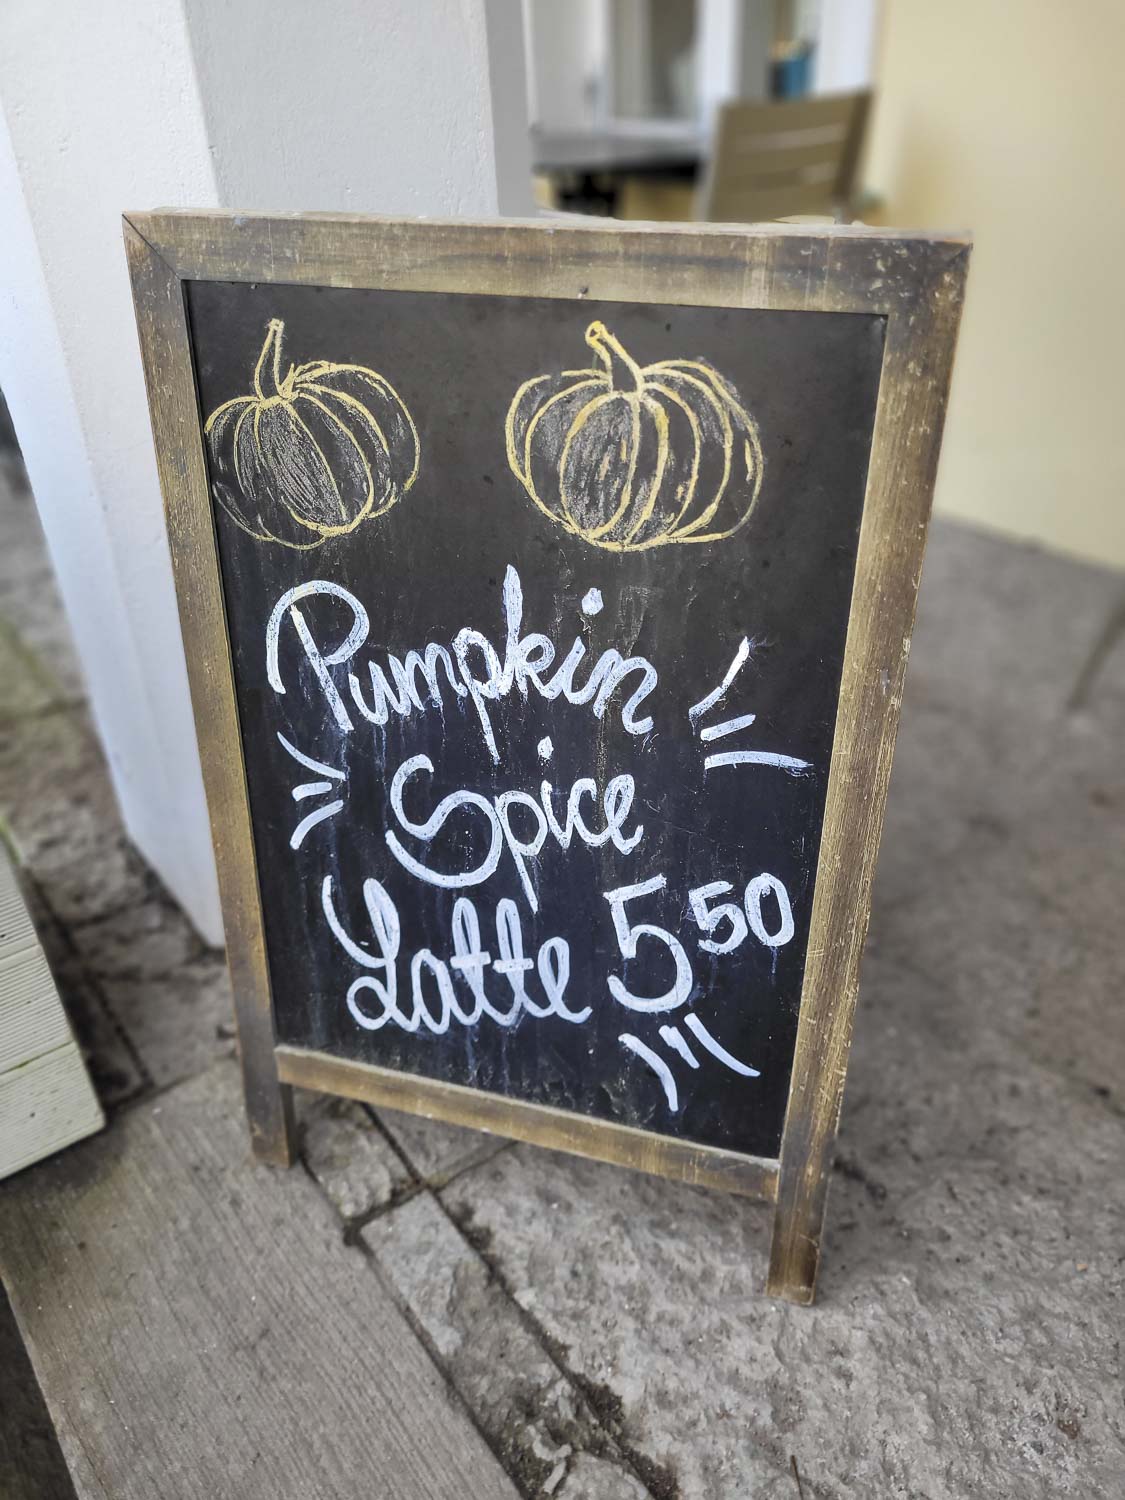 Pumpkin
Spice
Latte 5 50